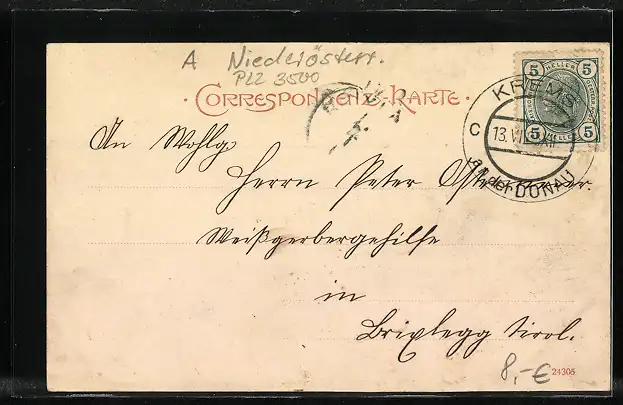 A Niederösterr.
PLZ 3500
CORRESPONDENZ-KARTE
5 HELLER 5
5 HELLER 5
KREMS
C 13. VI
a. der DONAU
An Wohlg.
Herrn Peter
Weißgerbergehilfe
in
Brixlegg Tirol.
8,-€
24305